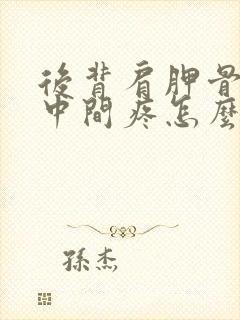 後背肩胛骨
中間疼怎麼
孫杰